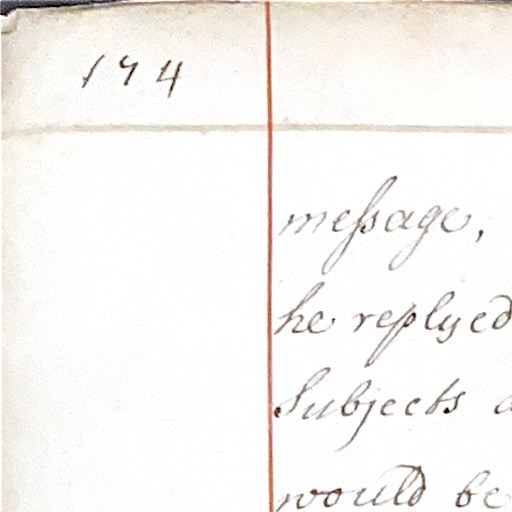 174
meſsage,
he replyed
Subjects a
would be